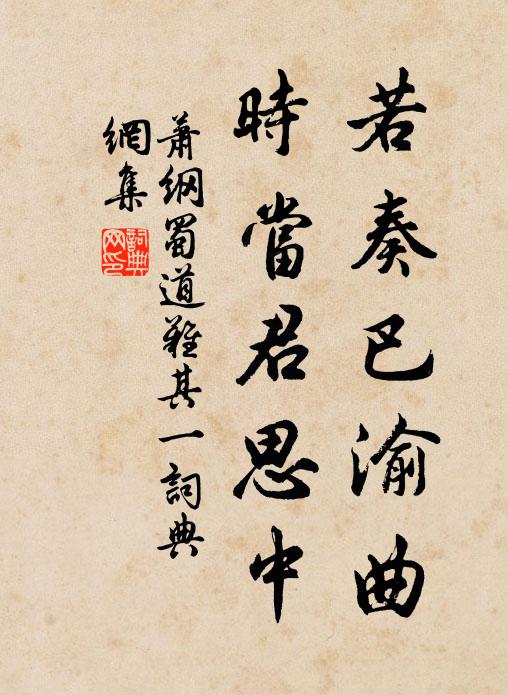 若奏巴渝曲
時當君思中
蕭綱蜀道難其一詞典
網集
詞典
网印